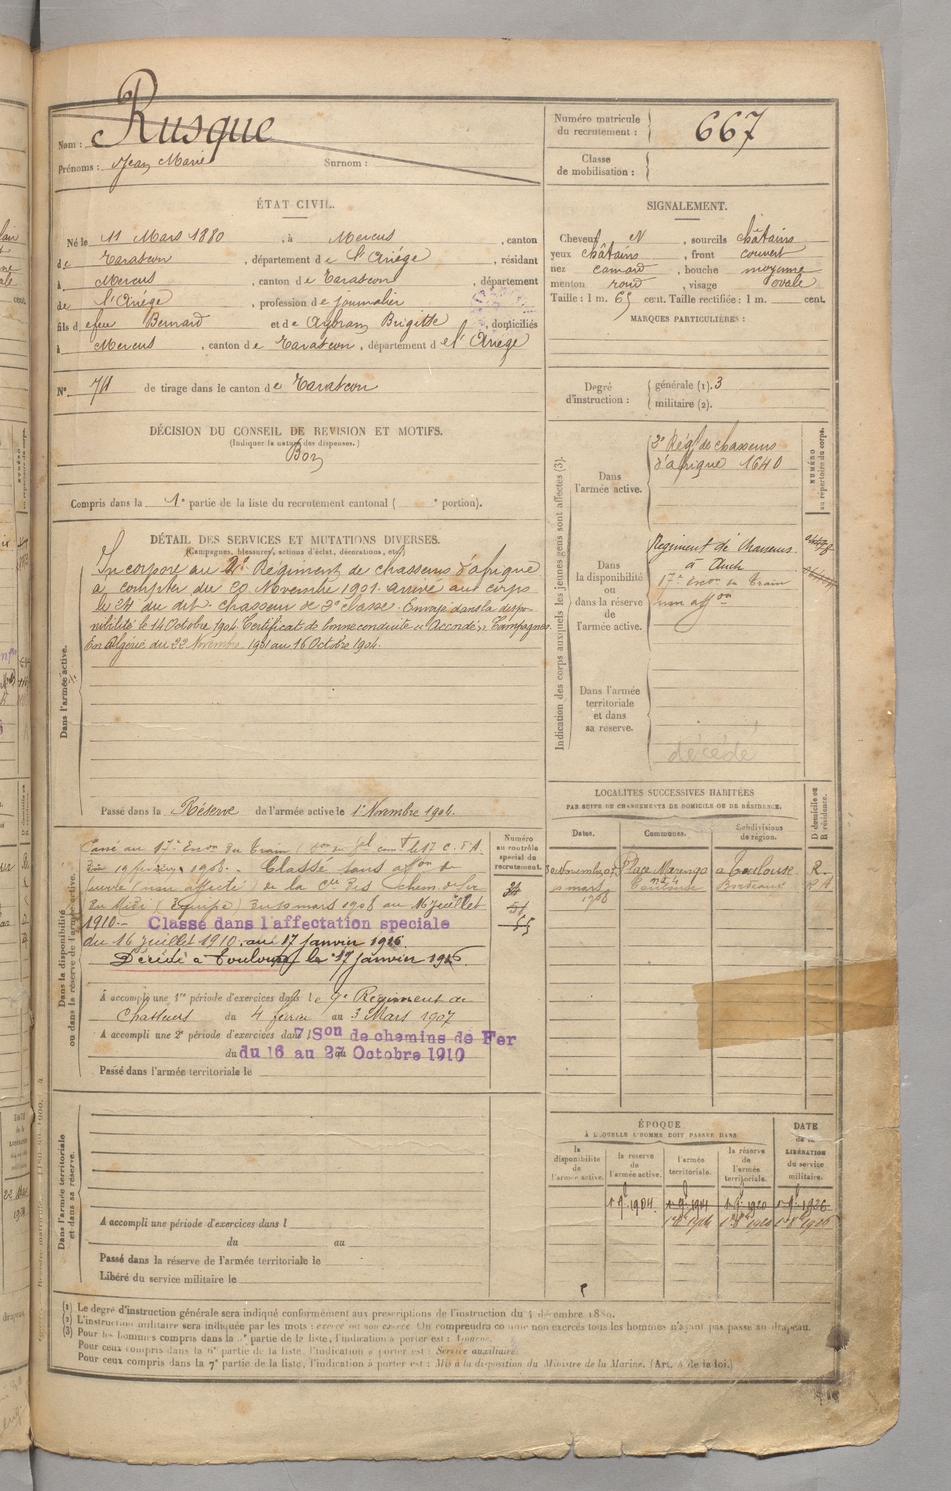 Nom : Rusque
Prénoms : Jean Marie Surnom :
Numéro matricule du recrutement : 667
Classe de mobilisation :
ÉTAT CIVIL.
Né le 11 Mars 1880, à Mercus, canton
de Tarascon, département de l'Ariège, résidant
à Mercus, canton de Tarascon, département
de l'Ariège, profession de journalier
fils de feu Bernard et de Aybram Brigitte, domiciliés
à Mercus, canton de Tarascon, département de l'Ariège
N° 71 de tirage dans le canton de Tarascon
SIGNALEMENT.
Cheveux N, sourcils châtains
yeux châtains, front couvert
nez camard, bouche moyenne
menton rond, visage ovale
Taille : 1 m. 65 cent. Taille rectifiée : 1 m. cent.
MARQUES PARTICULIÈRES :
Degré d'instruction : générale (1). 3
militaire (2).
DÉCISION DU CONSEIL DE REVISION ET MOTIFS.
(Indiquer la nature des dispenses.)
Bon
Compris dans la 1e partie de la liste du recrutement cantonal ( e portion).
DÉTAIL DES SERVICES ET MUTATIONS DIVERSES.
(Campagnes, blessures, actions d'éclat, décorations, etc.)
Dans l'armée active.
Incorporé au 2e Régiment de chasseurs d'afrique
à compter du 20 Novembre 1901 arrivé au corps
le 24 du dit chasseur de 2e classe. Envoyé dans la dispo-
nibilité le 14 Octobre 1904. Certificat de bonne conduite « Accordé ». Campagnes
En Algérie du 22 Novembre 1901 au 16 Octobre 1904.
Passé dans la Réserve de l'armée active le 1er Novembre 1904.
Indication des corps auxquels les jeunes gens sont affectés (3).
NUMÉRO au répertoire du corps.
Dans l'armée active.
2e Régt de chasseurs
d'afrique 1640
Dans la disponibilité ou dans la réserve de l'armée active.
Régiment de Chasseurs
à Auch
17e Escon du Train
non affon
Dans l'armée territoriale et dans sa réserve.
décédé
LOCALITÉS SUCCESSIVES HABITÉES
PAR SUITE DE CHANGEMENTS DE DOMICILE OU DE RÉSIDENCE.
Dates. Communes. Subdivisions de région. D domicile ou R résidence.
Place Marengo Toulouse R.
Toulouse Bordeaux
Dans la disponibilité ou dans la réserve de l'armée active.
Numéro au contrôle spécial du recrutement.
Passé au 17e Escon du Train
1908. Classé sans affon
(non affecté) de la Cie des chem. de fer
du Midi (Equipe) du 10 mars 1908 au 16 Juillet
1910. - Classé dans l'affectation speciale
du 16 Juillet 1910. au 17 Janvier 1916
Décédé à Toulouse le 17 Janvier 1916.
A accompli une 1re période d'exercices dans le 9e Régiment de
Chasseurs du 4 février au 3 Mars 1907
A accompli une 2e période d'exercices dans l 7 Son de chemins de Fer
du 16 au 27 Octobre 1910
Passé dans l'armée territoriale le
Dans l'armée territoriale et dans sa réserve.
A accompli une période d'exercices dans l
du au
Passé dans la réserve de l'armée territoriale le
Libéré du service militaire le
ÉPOQUE
À LAQUELLE L'HOMME DOIT PASSER DANS
DATE de la LIBÉRATION du service militaire.
la disponibilité de l'armée active. la réserve de l'armée active. l'armée territoriale. la réserve de l'armée territoriale.
(1) Le degré d'instruction générale sera indiqué conformément aux prescriptions de l'instruction du 4 décembre 1889.
(2) L'instruction militaire sera indiquée par les mots : exercé ou non exercé. On comprendra comme non exercés tous les hommes n'ayant pas passé au drapeau.
(3) Pour les hommes compris dans la partie de la liste, l'indication à porter est :
Pour ceux compris dans la 6e partie de la liste, l'indication à porter est : Service auxiliaire.
Pour ceux compris dans la 7e partie de la liste, l'indication à porter est : Mis à la disposition du Ministre de la Marine. (Art. 4 de la loi.)